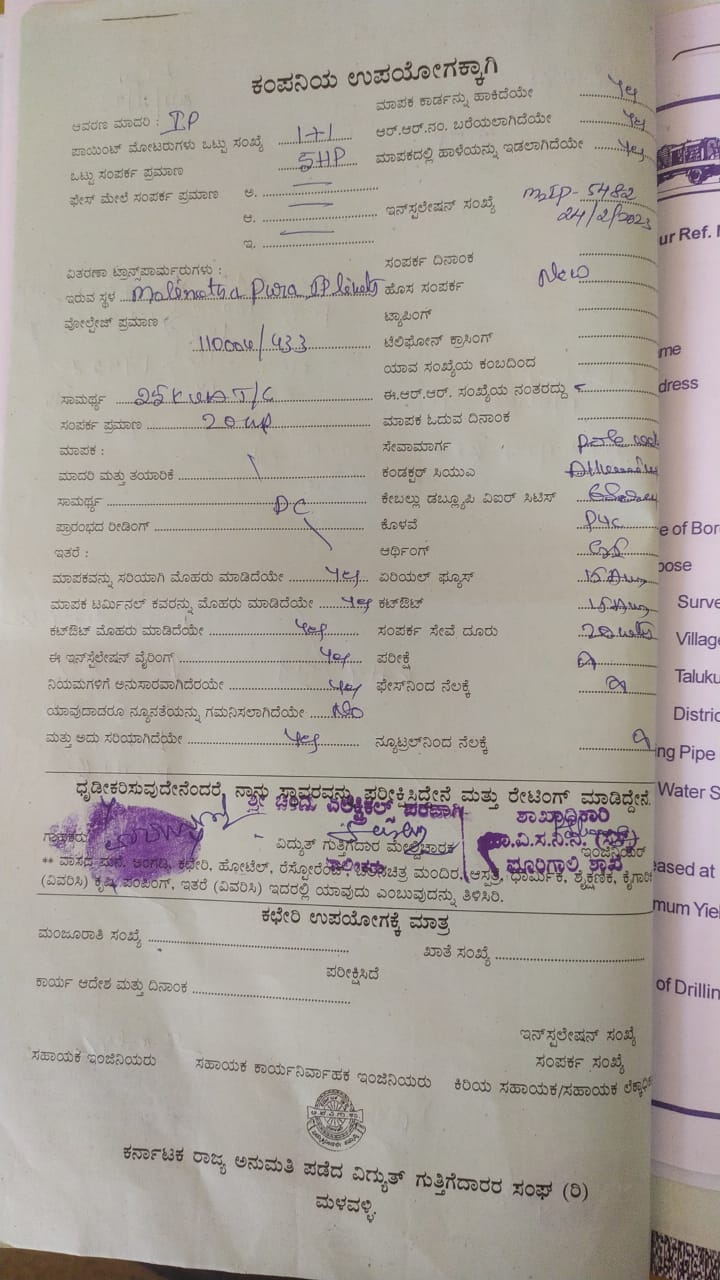 ಕಂಪನಿಯ ಉಪಯೋಗಕ್ಕಾಗಿ
ಆವರಣ ಮಾದರಿ : IP
ಮಾಪಕ ಕಾರ್ಡನ್ನು ಹಾಕಿದೆಯೇ yes
ಪಾಯಿಂಟ್ ಮೋಟರುಗಳು ಒಟ್ಟು ಸಂಖ್ಯೆ 1+1
ಆರ್.ಆರ್.ನಂ. ಬರೆಯಲಾಗಿದೆಯೇ yes
ಒಟ್ಟು ಸಂಪರ್ಕ ಪ್ರಮಾಣ 5HP
ಮಾಪಕದಲ್ಲಿ ಹಾಳೆಯನ್ನು ಇಡಲಾಗಿದೆಯೇ yes
ಫೇಸ್ ಮೇಲೆ ಸಂಪರ್ಕ ಪ್ರಮಾಣ ಅ.
ಆ.
ಇ.
ಇನ್‌ಸ್ಪಲೇಷನ್ ಸಂಖ್ಯೆ 5482
24/2/2023
ವಿತರಣಾ ಟ್ರಾನ್ಸ್‌ಪಾರ್ಮರುಗಳು :
ಸಂಪರ್ಕ ದಿನಾಂಕ
ಇರುವ ಸ್ಥಳ Pura IP
ಹೊಸ ಸಂಪರ್ಕ New
ವೋಲ್ಟೇಜ್ ಪ್ರಮಾಣ
ಟ್ಯಾಪಿಂಗ್
11000v/433
ಟೆಲಿಫೋನ್ ಕ್ರಾಸಿಂಗ್
ಯಾವ ಸಂಖ್ಯೆಯ ಕಂಬದಿಂದ
ಸಾಮರ್ಥ್ಯ 25KVA T/C
ಈ.ಆರ್.ಆರ್. ಸಂಖ್ಯೆಯ ನಂತರದ್ದು
ಸಂಪರ್ಕ ಪ್ರಮಾಣ 20HP
ಮಾಪಕ ಓದುವ ದಿನಾಂಕ
ಮಾಪಕ :
ಸೇವಾಮಾರ್ಗ
ಮಾದರಿ ಮತ್ತು ತಯಾರಿಕೆ
ಕಂಡಕ್ಟರ್ ಸಿಯುಎ
ಸಾಮರ್ಥ್ಯ DC
ಕೇಬಲ್ಲು ಡಬ್ಲ್ಯೂಪಿ ವಿಐರ್ ಸಿಟಿಸ್
ಪ್ರಾರಂಭದ ರೀಡಿಂಗ್
ಕೊಳವೆ PVC
ಇತರೆ :
ಆರ್ಥಿಂಗ್
ಮಾಪಕವನ್ನು ಸರಿಯಾಗಿ ಮೊಹರು ಮಾಡಿದೆಯೇ yes
ಏರಿಯಲ್ ಫ್ಯೂಸ್ 15 Amp
ಮಾಪಕ ಟರ್ಮಿನಲ್ ಕವರನ್ನು ಮೊಹರು ಮಾಡಿದೆಯೇ yes
ಕಟ್‌ಔಟ್ 15 Amp
ಕಟ್‌ಔಟ್ ಮೊಹರು ಮಾಡಿದೆಯೇ yes
ಸಂಪರ್ಕ ಸೇವೆ ದೂರು
ಈ ಇನ್‌ಸ್ಟಲೇಷನ್ ವೈರಿಂಗ್ yes
ಪರೀಕ್ಷೆ
ನಿಯಮಗಳಿಗೆ ಅನುಸಾರವಾಗಿದೆರಯೇ yes
ಫೇಸ್‌ನಿಂದ ನೆಲಕ್ಕೆ
ಯಾವುದಾದರೂ ನ್ಯೂನತೆಯನ್ನು ಗಮನಿಸಲಾಗಿದೆಯೇ No
ಮತ್ತು ಅದು ಸರಿಯಾಗಿದೆಯೇ yes
ನ್ಯೂಟ್ರಲ್‌ನಿಂದ ನೆಲಕ್ಕೆ
ಧೃಡೀಕರಿಸುವುದೇನೆಂದರೆ, ನಾನು ಸ್ಥಾವರವನ್ನು ಪರೀಕ್ಷಿಸಿದ್ದೇನೆ ಮತ್ತು ರೇಟಿಂಗ್ ಮಾಡಿದ್ದೇನೆ.
ಎಲೆಕ್ಟ್ರಿಕಲ್ಸ್ ಪರವಾಗಿ
ಶಾಖಾಧಿಕಾರಿ
ವಿದ್ಯುತ್ ಗುತ್ತಿಗೆದಾರ ಮೇಲ್ವಿಚಾರಕ
ಇಂಜಿನಿಯರ್
** ವಾಸದ ಮನೆ, ಅಂಗಡಿ, ಕಛೇರಿ, ಹೋಟೆಲ್, ರೆಸ್ಟೋರೆಂಟ್, ಚಲನಚಿತ್ರ ಮಂದಿರ, ಆಸ್ಪತ್ರೆ, ಧಾರ್ಮಿಕ, ಶೈಕ್ಷಣಿಕ, ಕೈಗಾರಿ
(ವಿವರಿಸಿ) ಕೃಷಿ ಪಂಪಿಂಗ್, ಇತರೆ (ವಿವರಿಸಿ) ಇದರಲ್ಲಿ ಯಾವುದು ಎಂಬುವುದನ್ನು ತಿಳಿಸಿರಿ.
ಕಛೇರಿ ಉಪಯೋಗಕ್ಕೆ ಮಾತ್ರ
ಮಂಜೂರಾತಿ ಸಂಖ್ಯೆ
ಖಾತೆ ಸಂಖ್ಯೆ
ಪರೀಕ್ಷಿಸಿದೆ
ಕಾರ್ಯ ಆದೇಶ ಮತ್ತು ದಿನಾಂಕ
ಇನ್‌ಸ್ಪಲೇಷನ್ ಸಂಖ್ಯೆ
ಸಂಪರ್ಕ ಸಂಖ್ಯೆ
ಸಹಾಯಕ ಇಂಜಿನಿಯರು ಸಹಾಯಕ ಕಾರ್ಯನಿರ್ವಾಹಕ ಇಂಜಿನಿಯರು ಕಿರಿಯ ಸಹಾಯಕ/ಸಹಾಯಕ ಲೆಕ್ಕಾಧಿಕ
ಕರ್ನಾಟಕ ರಾಜ್ಯ ಅನುಮತಿ ಪಡೆದ ವಿದ್ಯುತ್ ಗುತ್ತಿಗೆದಾರರ ಸಂಘ (ರಿ)
ಮಳವಳ್ಳಿ.
ur Ref.
me
dress
e of Bor
pose
Surve
Village
Taluku
Distric
ng Pipe
Water S
eased at
mum Yiel
of Drillin